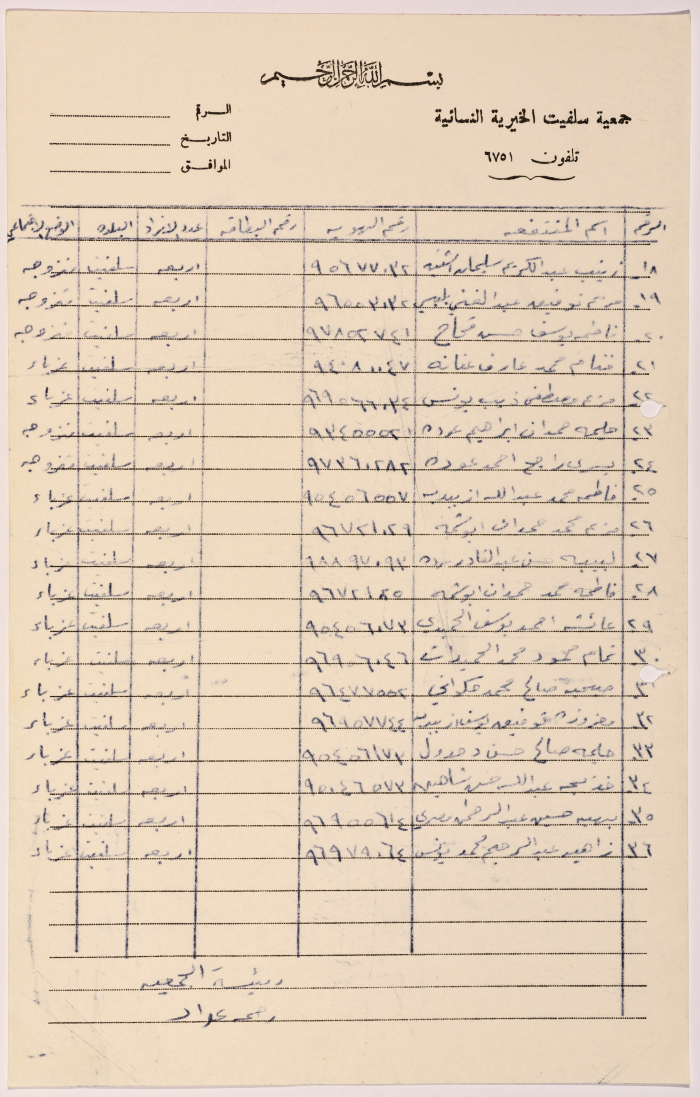 بسم الله الرحمن الرحيم
جمعية سلفيت الخيرية النسائية
تلفون ٦٧٥١
الرقم
التاريخ
الموافق
الرقم اسم المنتفعه رقم الهويه رقم البطاقه عدد الافراد البلده الوضع الاجتماعي
١٨ زينب عبد الكريم سليمان ٩٥٦٧٧٠٣٢ اربعه سلفيت متزوجه
١٩ مريم توفيق عبد الغني اربعه سلفيت متزوجه
٢٠ فاطمه يوسف حسن ٩٧٨٥٢٧٤١ اربعه سلفيت متزوجه
٢١ محمد عارف عفانه ٩٤٠٨٠٠٤٧ اربعه سلفيت عزباء
٢٢ مريم مصطفى ذيب يونس اربعه سلفيت عزباء
٢٣ حليمه حمدان ابراهيم عوده ٩٣٤٥٥٥٢١ اربعه سلفيت متزوجه
٢٤ يسرى راجح احمد عوده ٩٧٣٦٠٢٨٢ اربعه سلفيت متزوجه
٢٥ فاطمه محمد عبد الله ٩٥٤٥٦٥٥٧ اربعه سلفيت عزباء
٢٦ مريم محمد حمدان ابو ٩٦٧٢١٠٢٩ اربعه سلفيت عزباء
٢٧ لبيبه حسن عبد القادر اربعه سلفيت عزباء
٢٨ فاطمه محمد حمدان ابو اربعه سلفيت عزباء
٢٩ عائشه احمد يوسف ٩٥٤٥٦٠٧٣ اربعه سلفيت عزباء
٣٠ تمام محمود محمد ٩٦٩٠٦٠٤٦ اربعه سلفيت عزباء
صالح محمد ٩٦٤٧٧٥٥٢ اربعه سلفيت عزباء
٣٢ توفيق يوسف ٩٦٩٥٧٧٤٤ اربعه سلفيت عزباء
٣٣ حليمه صالح حسن ٩٥٤٥٦١٧٣ اربعه سلفيت عزباء
٣٤ خديجه عبد الله حسن شاهين ٩٥٠٤٦٥٧٣ اربعه سلفيت عزباء
٣٥ حسين عبد الرحمن ٩٦٩٥٥٦١٤ اربعه سلفيت عزباء
٣٦ زاهيه عبد الرحيم محمد يونس ٩٦٩٧٩٠٦٤ اربعه سلفيت عزباء
رئيسة الجمعيه
عواد